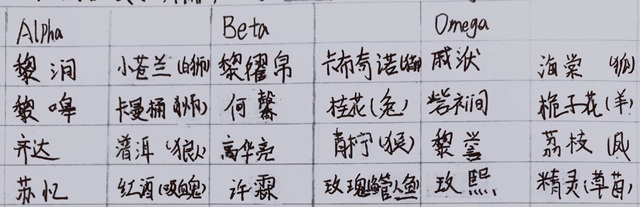 Alpha Beta Omega
黎润 小苍兰(白狮) 黎耀帛 卡布奇诺 戚洑 海棠(狐)
黎嗥 卡曼橘(狮) 何馨 桂花(兔) 祄间 栀子花(羊)
齐达 普洱(狼人) 高华亮 青柠(狼) 黎誉 荔枝(凤)
苏忆 红酒(吸血鬼) 许霖 玫瑰(人鱼) 玫熙 精灵(草莓)